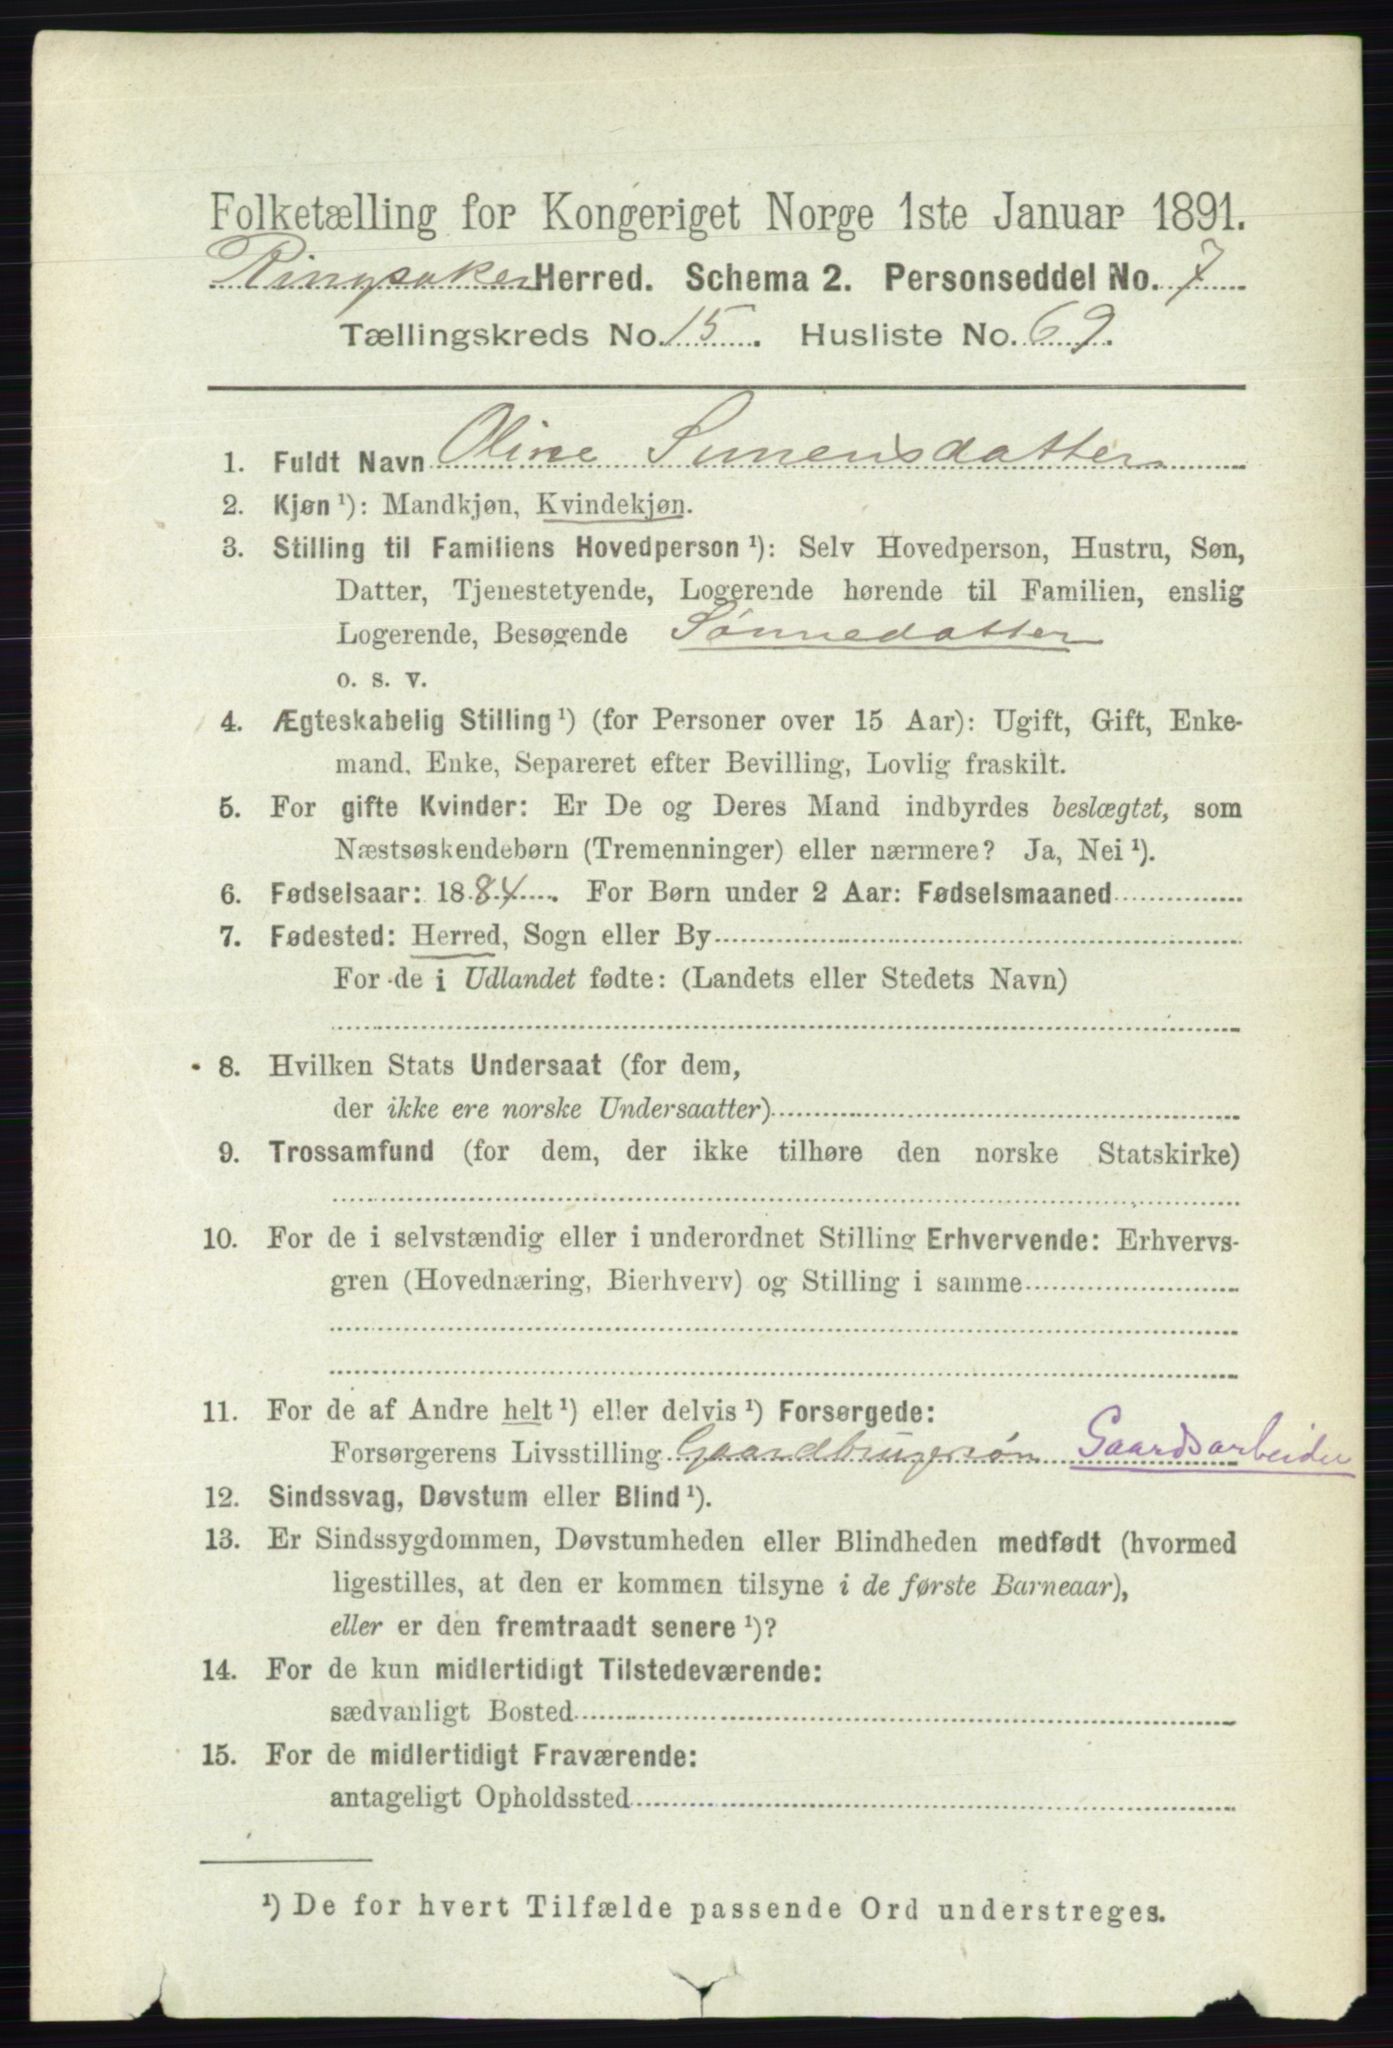 Folketælling for Kongeriget Norge 1ste Januar 1891.
Ringsaker Herred. Schema 2. Personseddel No. 7
Tællingskreds No. 15. Husliste No. 69.
1. Fuldt Navn Oline Simensdatter
2. Kjøn ¹): Mandkjøn, Kvindekjøn.
3. Stilling til Familiens Hovedperson ¹): Selv Hovedperson, Hustru, Søn,
Datter, Tjenestetyende, Logerende hørende til Familien, enslig
Logerende, Besøgende Sønnedatter
o. s. v.
4. Ægteskabelig Stilling ¹) (for Personer over 15 Aar): Ugift, Gift, Enke-
mand, Enke, Separeret efter Bevilling, Lovlig fraskilt.
5. For gifte Kvinder: Er De og Deres Mand indbyrdes beslægtet, som
Næstsøskendebørn (Tremenninger) eller nærmere? Ja, Nei ¹).
6. Fødselsaar: 1884. For Børn under 2 Aar: Fødselsmaaned
7. Fødested: Herred, Sogn eller By
For de i Udlandet fødte: (Landets eller Stedets Navn)
8. Hvilken Stats Undersaat (for dem,
der ikke ere norske Undersaatter)
9. Trossamfund (for dem, der ikke tilhøre den norske Statskirke)
10. For de i selvstændig eller i underordnet Stilling Erhvervende: Erhvervs-
gren (Hovednæring, Bierhverv) og Stilling i samme
11. For de af Andre helt ¹) eller delvis ¹) Forsørgede:
Forsørgerens Livsstilling Gaardbrugersøn Gaardsarbeider
12. Sindssvag, Døvstum eller Blind ¹).
13. Er Sindssygdommen, Døvstumheden eller Blindheden medfødt (hvormed
ligestilles, at den er kommen tilsyne i de første Barneaar),
eller er den fremtraadt senere ¹)?
14. For de kun midlertidigt Tilstedeværende:
sædvanligt Bosted
15. For de midlertidigt Fraværende:
antageligt Opholdssted
¹) De for hvert Tilfælde passende Ord understreges.